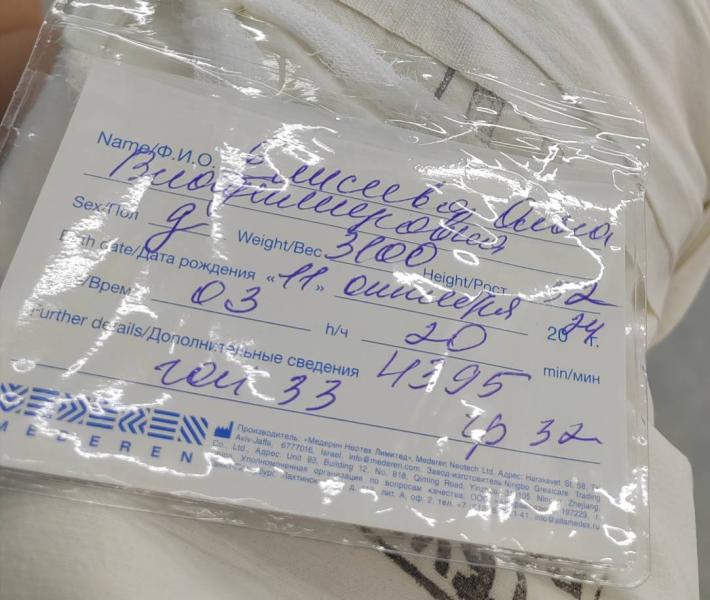 Name/Ф.И.О. Елисеева Анна
Владимировна
Sex/Пол д Weight/Вес 3100 Height/Рост 52
Birth date/Дата рождения «11» октября 2024 г.
/Время 03 h/ч 20 min/мин
Further details/Дополнительные сведения 4395
гол 33 гр 32
MEDEREN
Производитель: «Медерен Неотех Лимитед», Mederen Neotech Ltd. Адрес: Harakevet St. 58, Tel
Aviv-Jaffa, 6777016, Israel, info@mederen.com. Завод-изготовитель: Ningbo Greatcare Trading
Co., Ltd., Адрес: Unit 93, Building 12, No. 818, Qiming Road, Yinzhou, 105 Ningbo, Zhejiang,
Уполномоченная организация по вопросам качества: ООО 197229, г.
бург, Лахтинск лит. А, оф. 2, тел. +7 41, info@alfamedex.ru